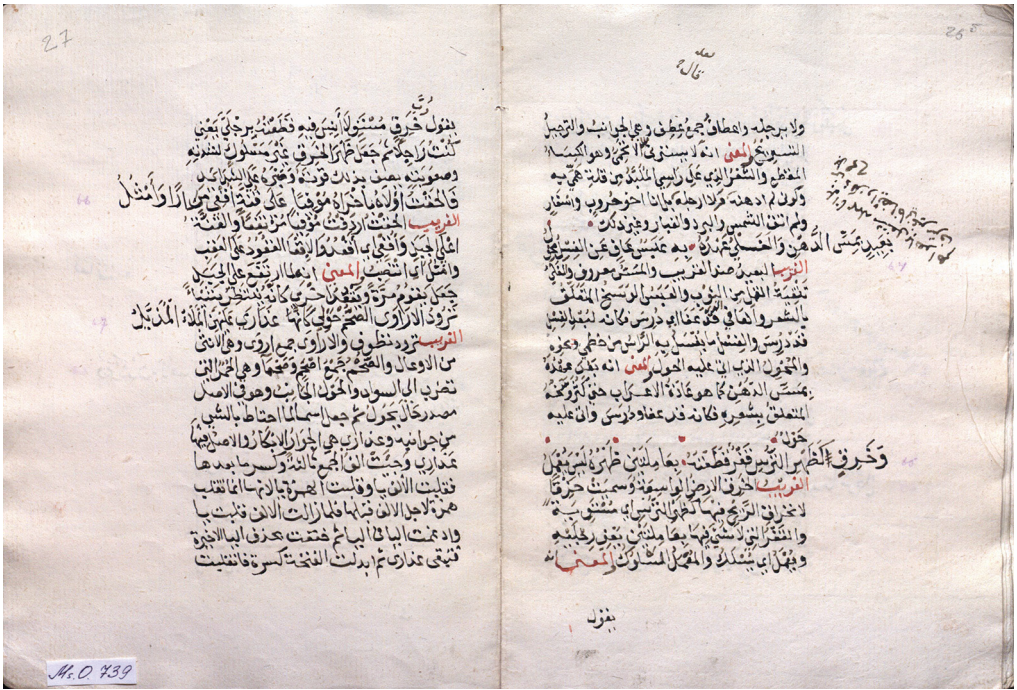 25
قال
ولا برجله واعطافه جمع عطف وهي الجوانب والترجيل
التسريح المعنى انه لا يسترني الا الاتحمي وهو الكساء
المقطع والشعر الذي على راسي الملبد من قلة همي به
وكوني لم ادهنه ولا ارجله باننا اخو حروب واسفار
ولم اتق الشمس والبرد والغبار وغير ذلك
بعيد بمس الدهن والفلي عهده به عبس عاف عن الغسل محول
الغريب البعيد ضد القريب والمس معروف والفلي
تنقية القمل من الثوب والعبس الوسخ المتعلق
بالشعر والعافي عفا اي درس فكانه لبعد الغسل
قد درس والغسل ما يغسل به الراس من خطمي ونحوه
والمحول الذي اتى عليه الحول المعنى انه بعيد عهده
بمس الدهن كما هو عادة الاعراب حتى كثر وسخه
المتعلق بشعره فكانه قد عفا ودرس واتى عليه
حول
وخرق كظهر الترس قفر قطعته بعاملتين ظهره ليس يعمل
الغريب الخرق الارض الواسعة وسميت خرقا
لانخراق الريح فيها كظهر الترس اي مستوي
والقفر التي لا شيء فيها بعاملتين يعني رجليه
ويعمل اي يسلك والمعنى
يقول
27
يقول رُبَّ خرق مستو لا انيس فيه قطعته برجلي يعني
كنت راجلا ثم جعل ظهر الخرق غير معمول لشدته
وصعوبته يصف بذلك قوته
فالحقت اولاه باخراه موفيا على قنة اقعي مرارا وامثل
الغريب الحقت اردفت موفيا مرتفعا والقنة
اعلى الجبل واقعي اي اقعد والاقعاء القعود على العقب
وامثل اي انتصب المعنى انه لما ارتفع على الجبل
جعل يقوم مرة ويقعد اخرى كانه ينتظر شيئا
ترود الاراوى الصحم حولي كانها عذارى عليهن الملاء المذيل
الغريب ترود تطوف والاراوى جمع اروى وهي الانثى
من الاوعال والصحم جمع اصحم وصحما وهي الحمر التي
تضرب الى السواد والحول الجانب وهو في الاصل
مصدر حال يحول ثم جعل اسما لما احتاط بالشيء
من جوانبه وعذارى هي الجوار الابكار والاصل فيها
عذاري وجئت الف الجمع ثالثة وكسر ما بعدها
فقلبت الالف يا وقلبت الهمزة يا لانها انما تقلب
همزة لاجل الالف قبلها فلما زالت الالف قلبت يا
وادغمت اليا في اليا ثم خففت بحذف اليا الاخيرة
فبقي عذاري ثم ابدلت الفتحة كسرة فانقلبت
Ms. O. 739